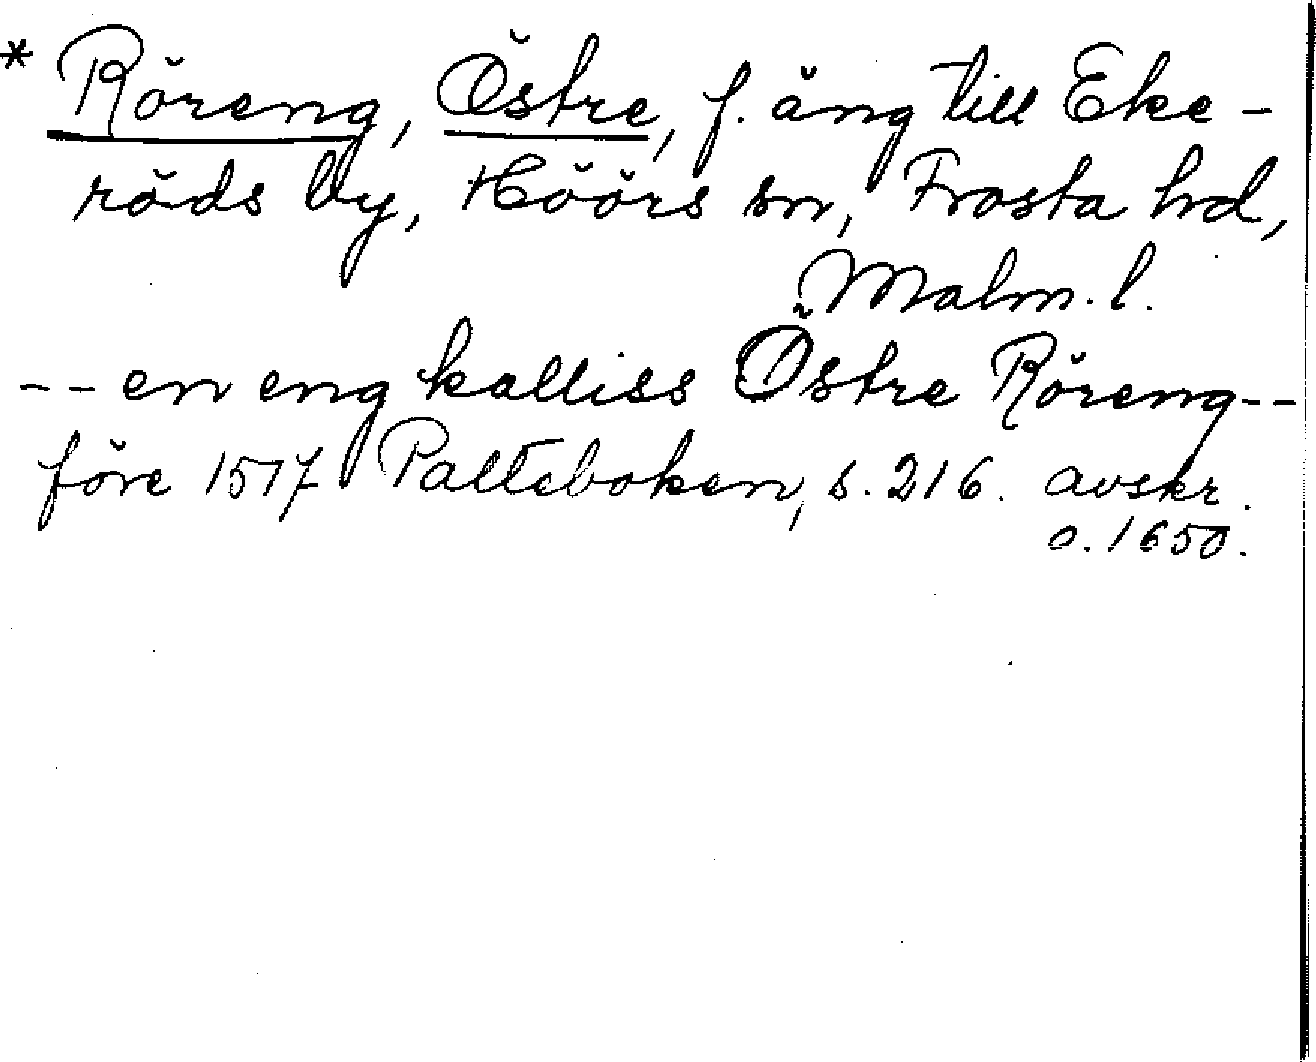 * Röreng, Östre, f. äng till Eke-
röds by, Höörs sn, Frosta hd,
Malm. l.
-- en eng kalliss Östre Röreng --
före 1517 Palteboken, s. 216. avskr.
o. 1650.